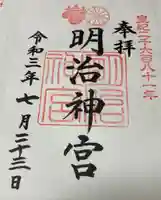 皇紀二千六百八十一年
奉拝
明治神宮
令和三年七月二十三日